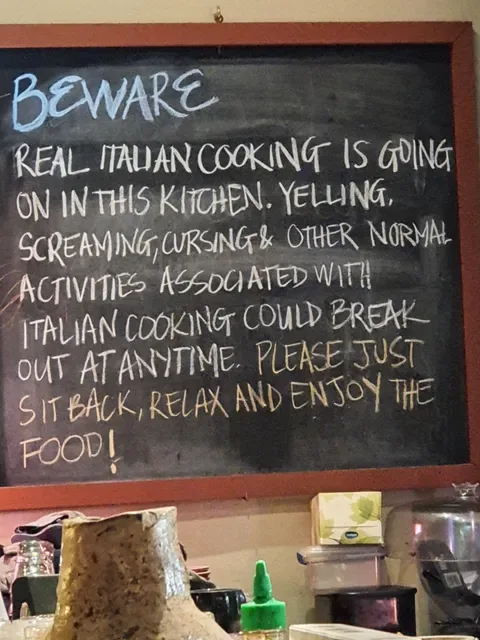 BEWARE
REAL ITALIAN COOKING IS GOING
ON IN THIS KITCHEN. YELLING,
SCREAMING, CURSING & OTHER NORMAL
ACTIVITIES ASSOCIATED WITH
ITALIAN COOKING COULD BREAK
OUT AT ANYTIME. PLEASE JUST
SIT BACK, RELAX AND ENJOY THE
FOOD!